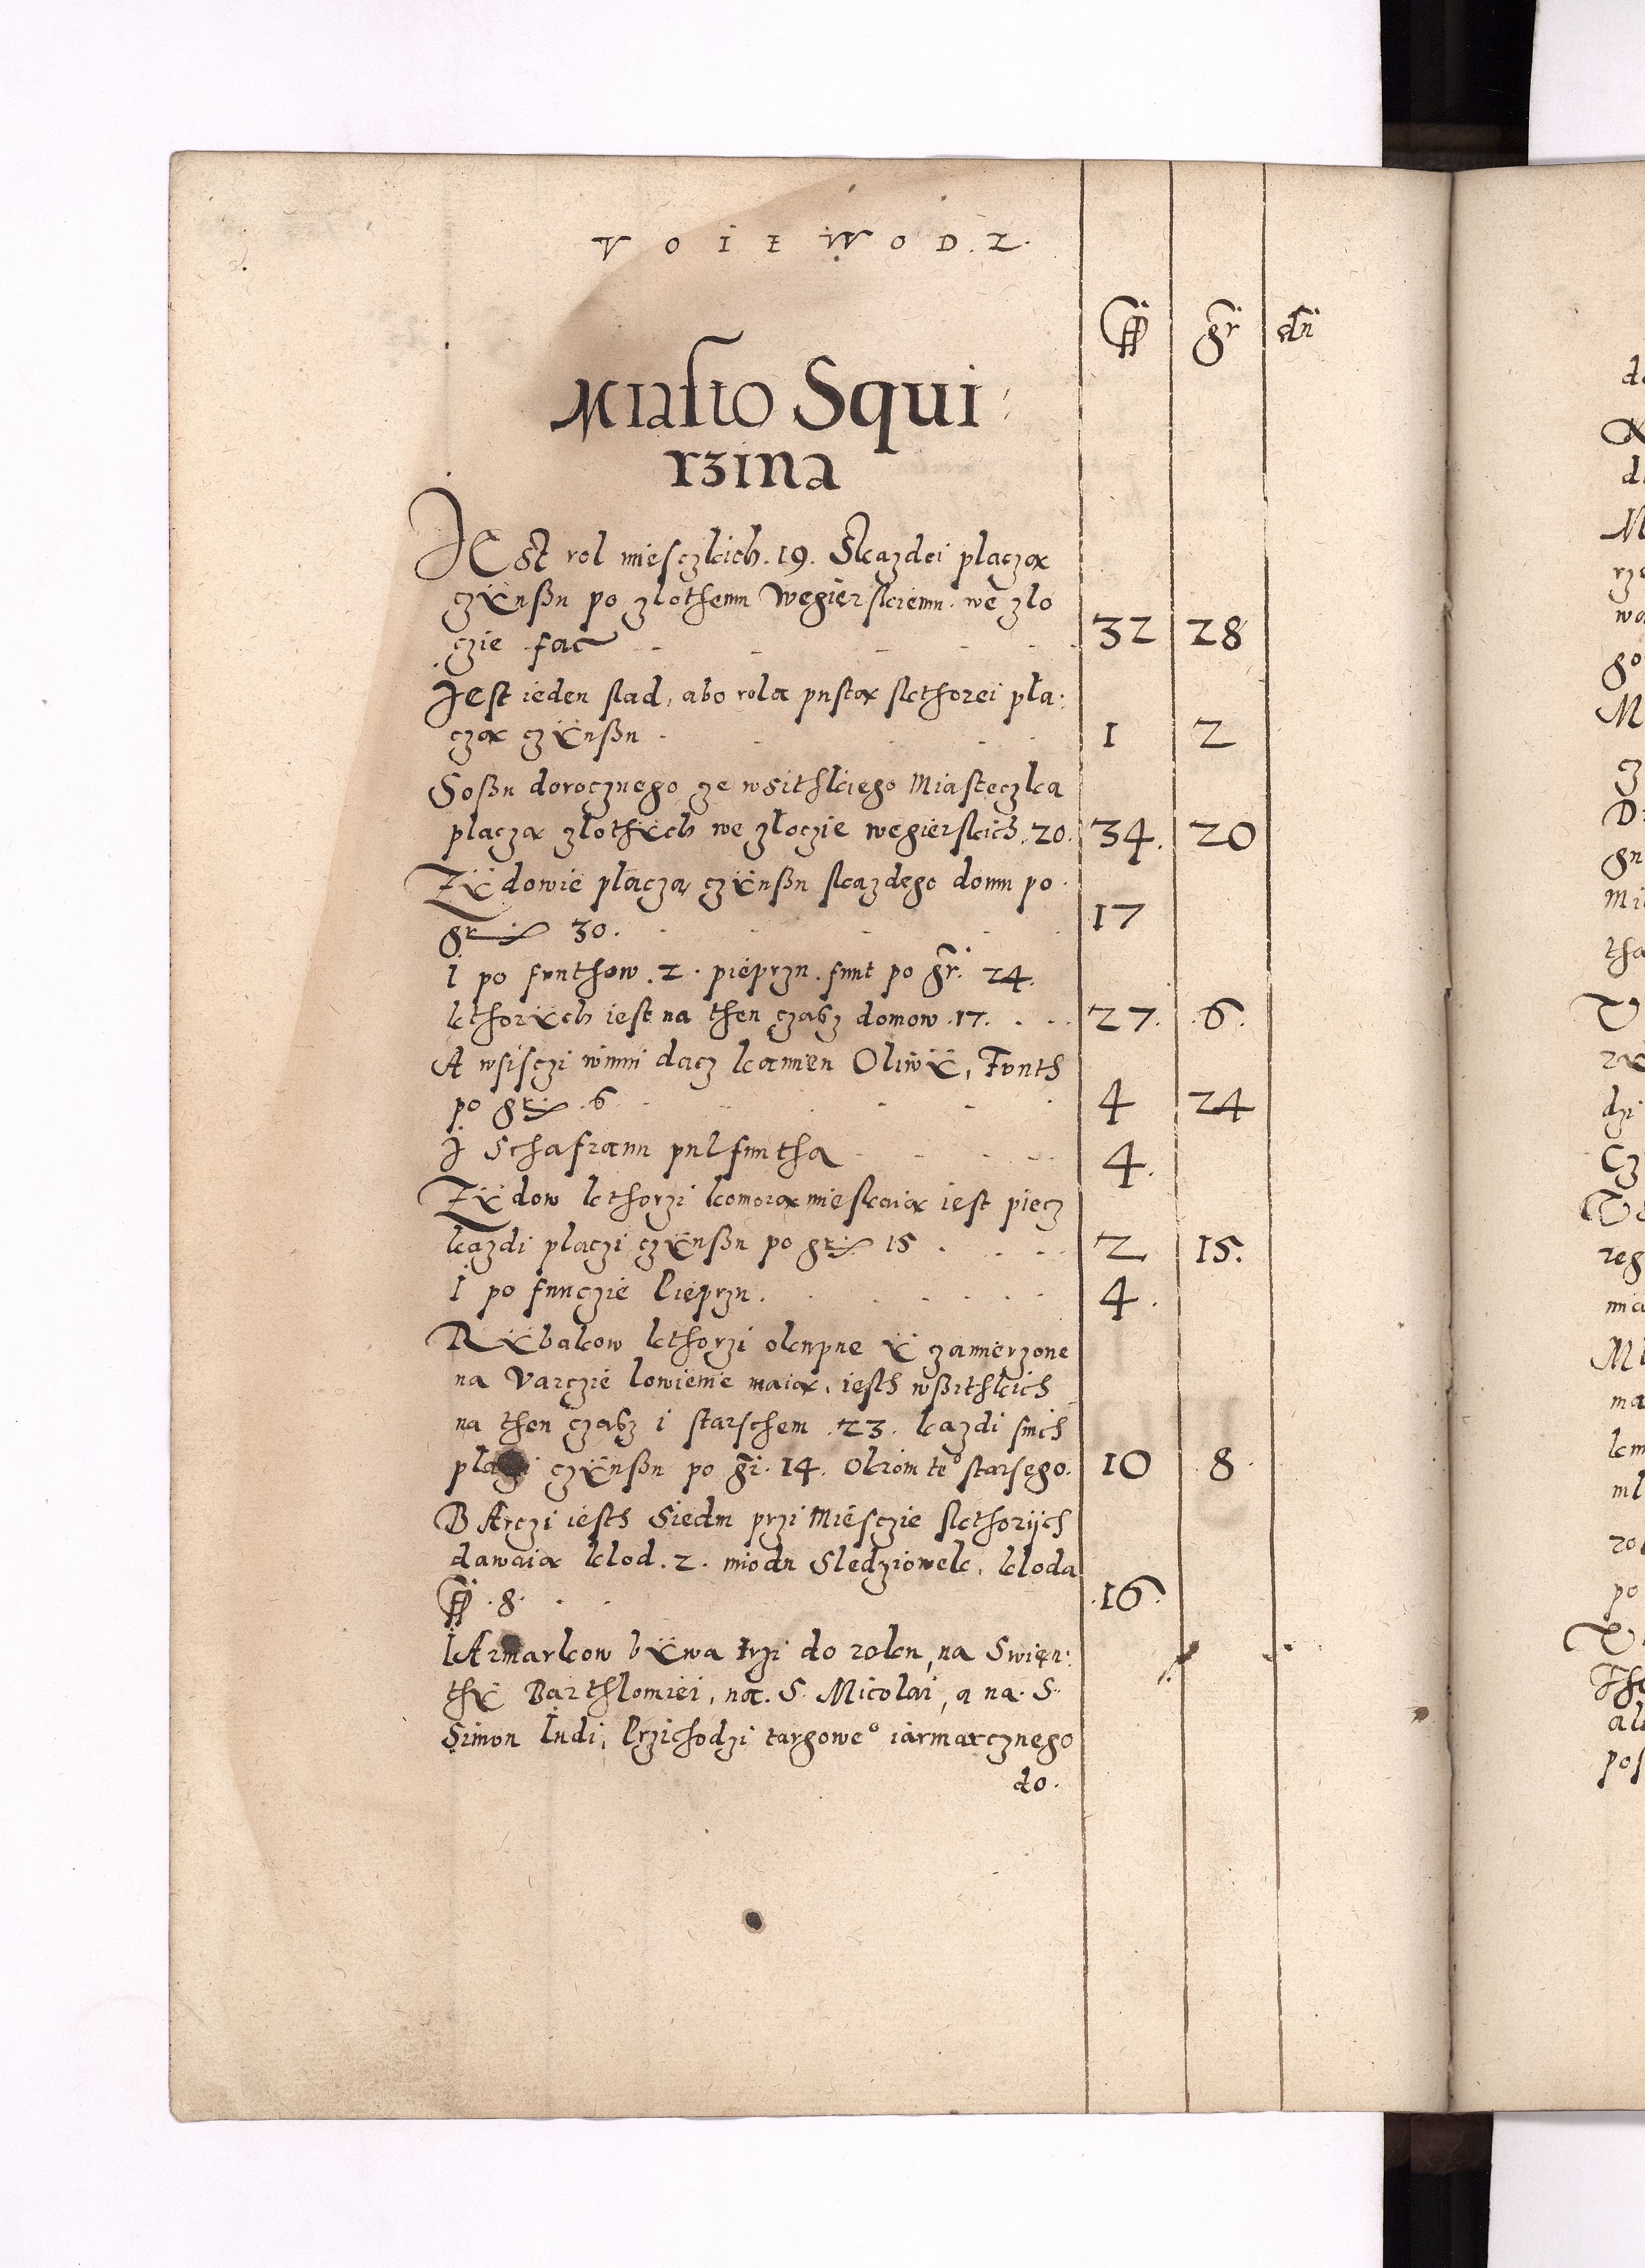 VOIEWODZ.
fl gr dn
Miasto Squi
rzina
JESt rol miesczkich. 19. Skazdei placzą
czÿnßu po zlothemu Węgierskiemu. we zlo
czie fac 32 28
Jest ieden slad, abo rola pusta skthorei pła:
czą czÿnßu 1 2
Soßu dorocznego ze wsithkiego Miasteczka
placzą złothÿch we złoczie węgierskich. 20. 34. 20
Zÿdowie płaczą czÿnßu skazdego domu po
gr 30. 17
i po funthow. 2. pieprzu. funt po gr. 24.
kthorÿch iest na then czaß domow. 17. 27. 6.
A wsisczi winni dacz kamien Oliwÿ, Funth
po gr. 6 4 24
J Schafranu pul funtha 4.
Zÿdow kthorzi komorą mieskaią iest piecz
kazdi placzi czÿnßu po gr 15 2 15.
I po funczie Pieprzu. 4.
Rÿbakow kthorzi okupne ÿ zamierzone
na Varczie lowienie maią, iesth wßithkich
na then czaß i starschem. 23. kazdi snich
placzi czÿnßu po gr. 14. Okrom te° starsego. 10 8
BArczi iesth Siedm przi Miesczie skthorijch
dawaią klod. 2. miodu Sledziowek, kloda
fl. 8. 16.
IArmarkow bÿwa trzi do roku, na Swięn:
thÿ Barthlomiei, na. S. Micolai, a na. S.
Simon Iudi, Przichodzi targowe° iarmarcznego
do.